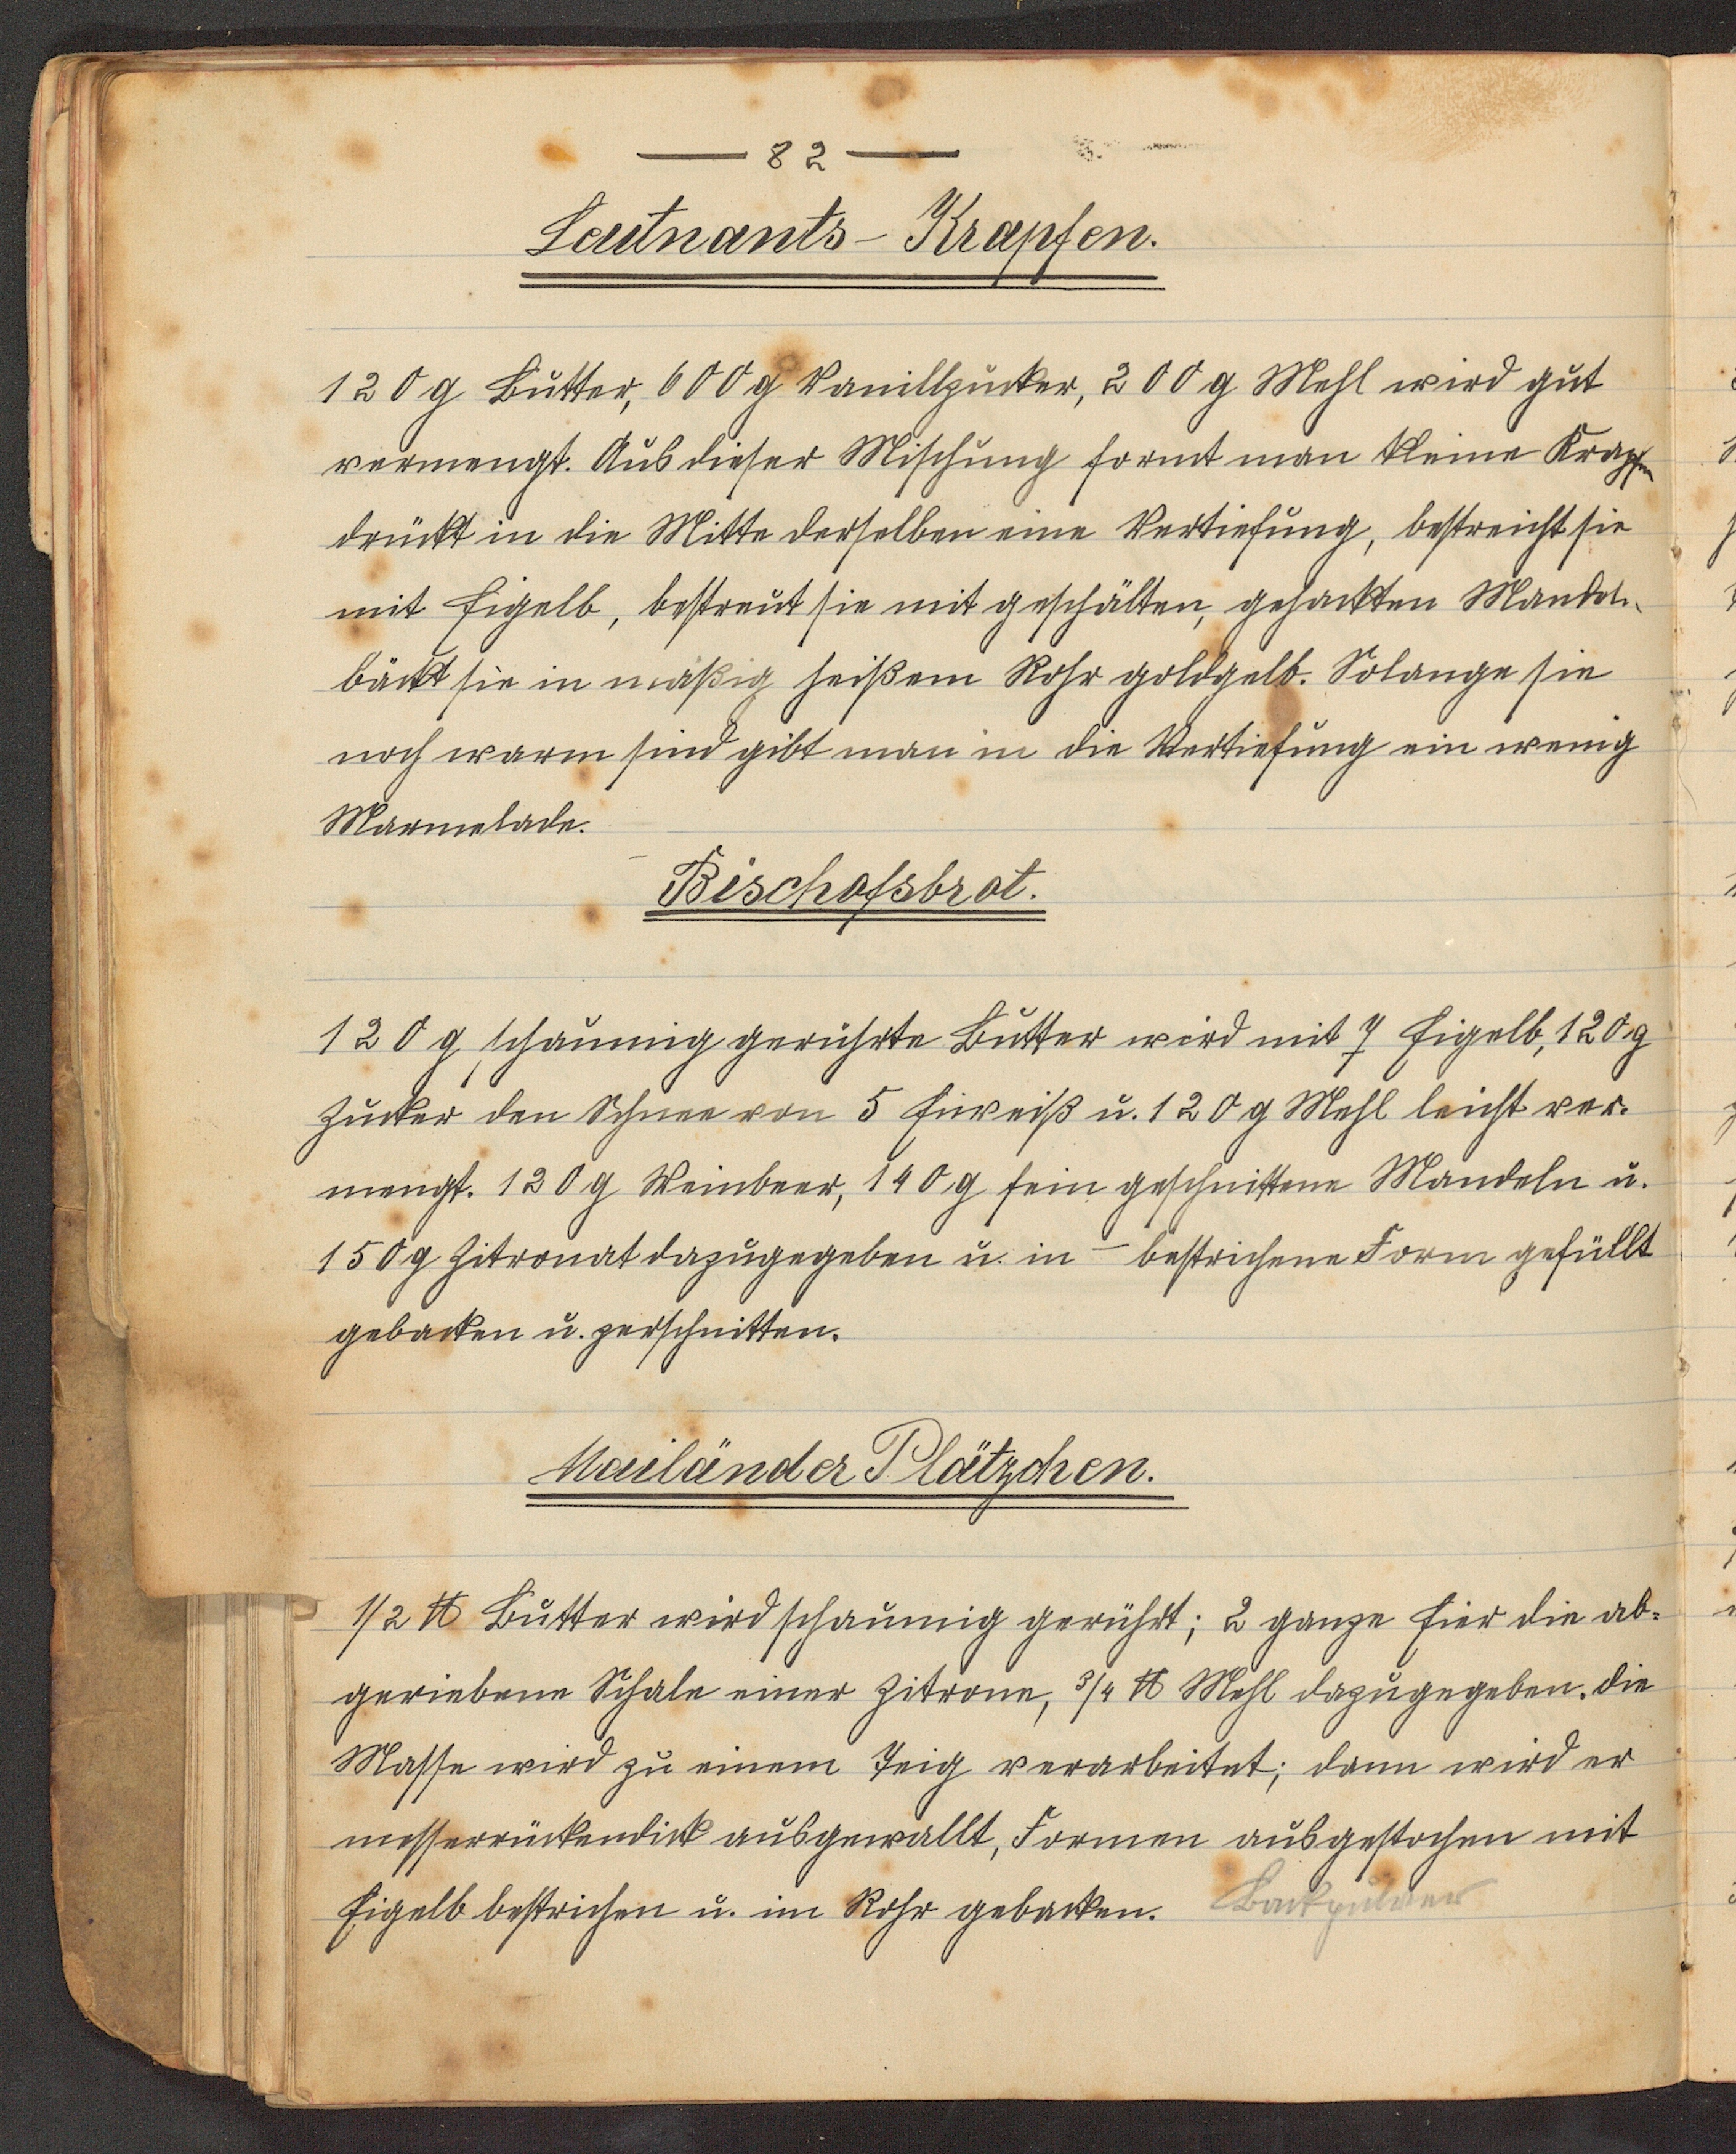 — 82 —
Leutnants-Krapfen.
120 g Butter, 600 g Vanillzucker, 200 g Mehl wird gut
vermengt. Aus dieser Mischung formt man kleine Krapfen
drückt in die Mitte derselben eine Vertiefung, bestreicht sie
mit Eigelb, bestreut sie mit geschälten, gehackten Mandeln
bäckt sie in mäßig heißem Rohr goldgelb. Solange sie
noch warm sind gibt man in die Vertiefung ein wenig
Marmelade.
Bischofsbrot.
120 g schaumig gerührte Butter wird mit 7 Eigelb, 120 g
Zucker den Schnee von 5 Eiweiß u. 120 g Mehl leicht ver-
mengt. 120 g Weinbeer, 140 g fein geschnittene Mandeln u.
150 g Zitronat dazugegeben u. in – bestrichene Form gefüllt
gebacken u. zerschnitten.
Mailänder Plätzchen.
1/2 ℔ Butter wird schaumig gerührt; 2 ganze Eier die ab=
geriebene Schale einer Zitrone, 3/4 ℔ Mehl dazugegeben. Die
Masse wird zu einem Teig verarbeitet; dann wird er
messerrückendick ausgewallt, Formen ausgestochen mit
Eigelb bestrichen u. im Rohr gebacken. Backpulver